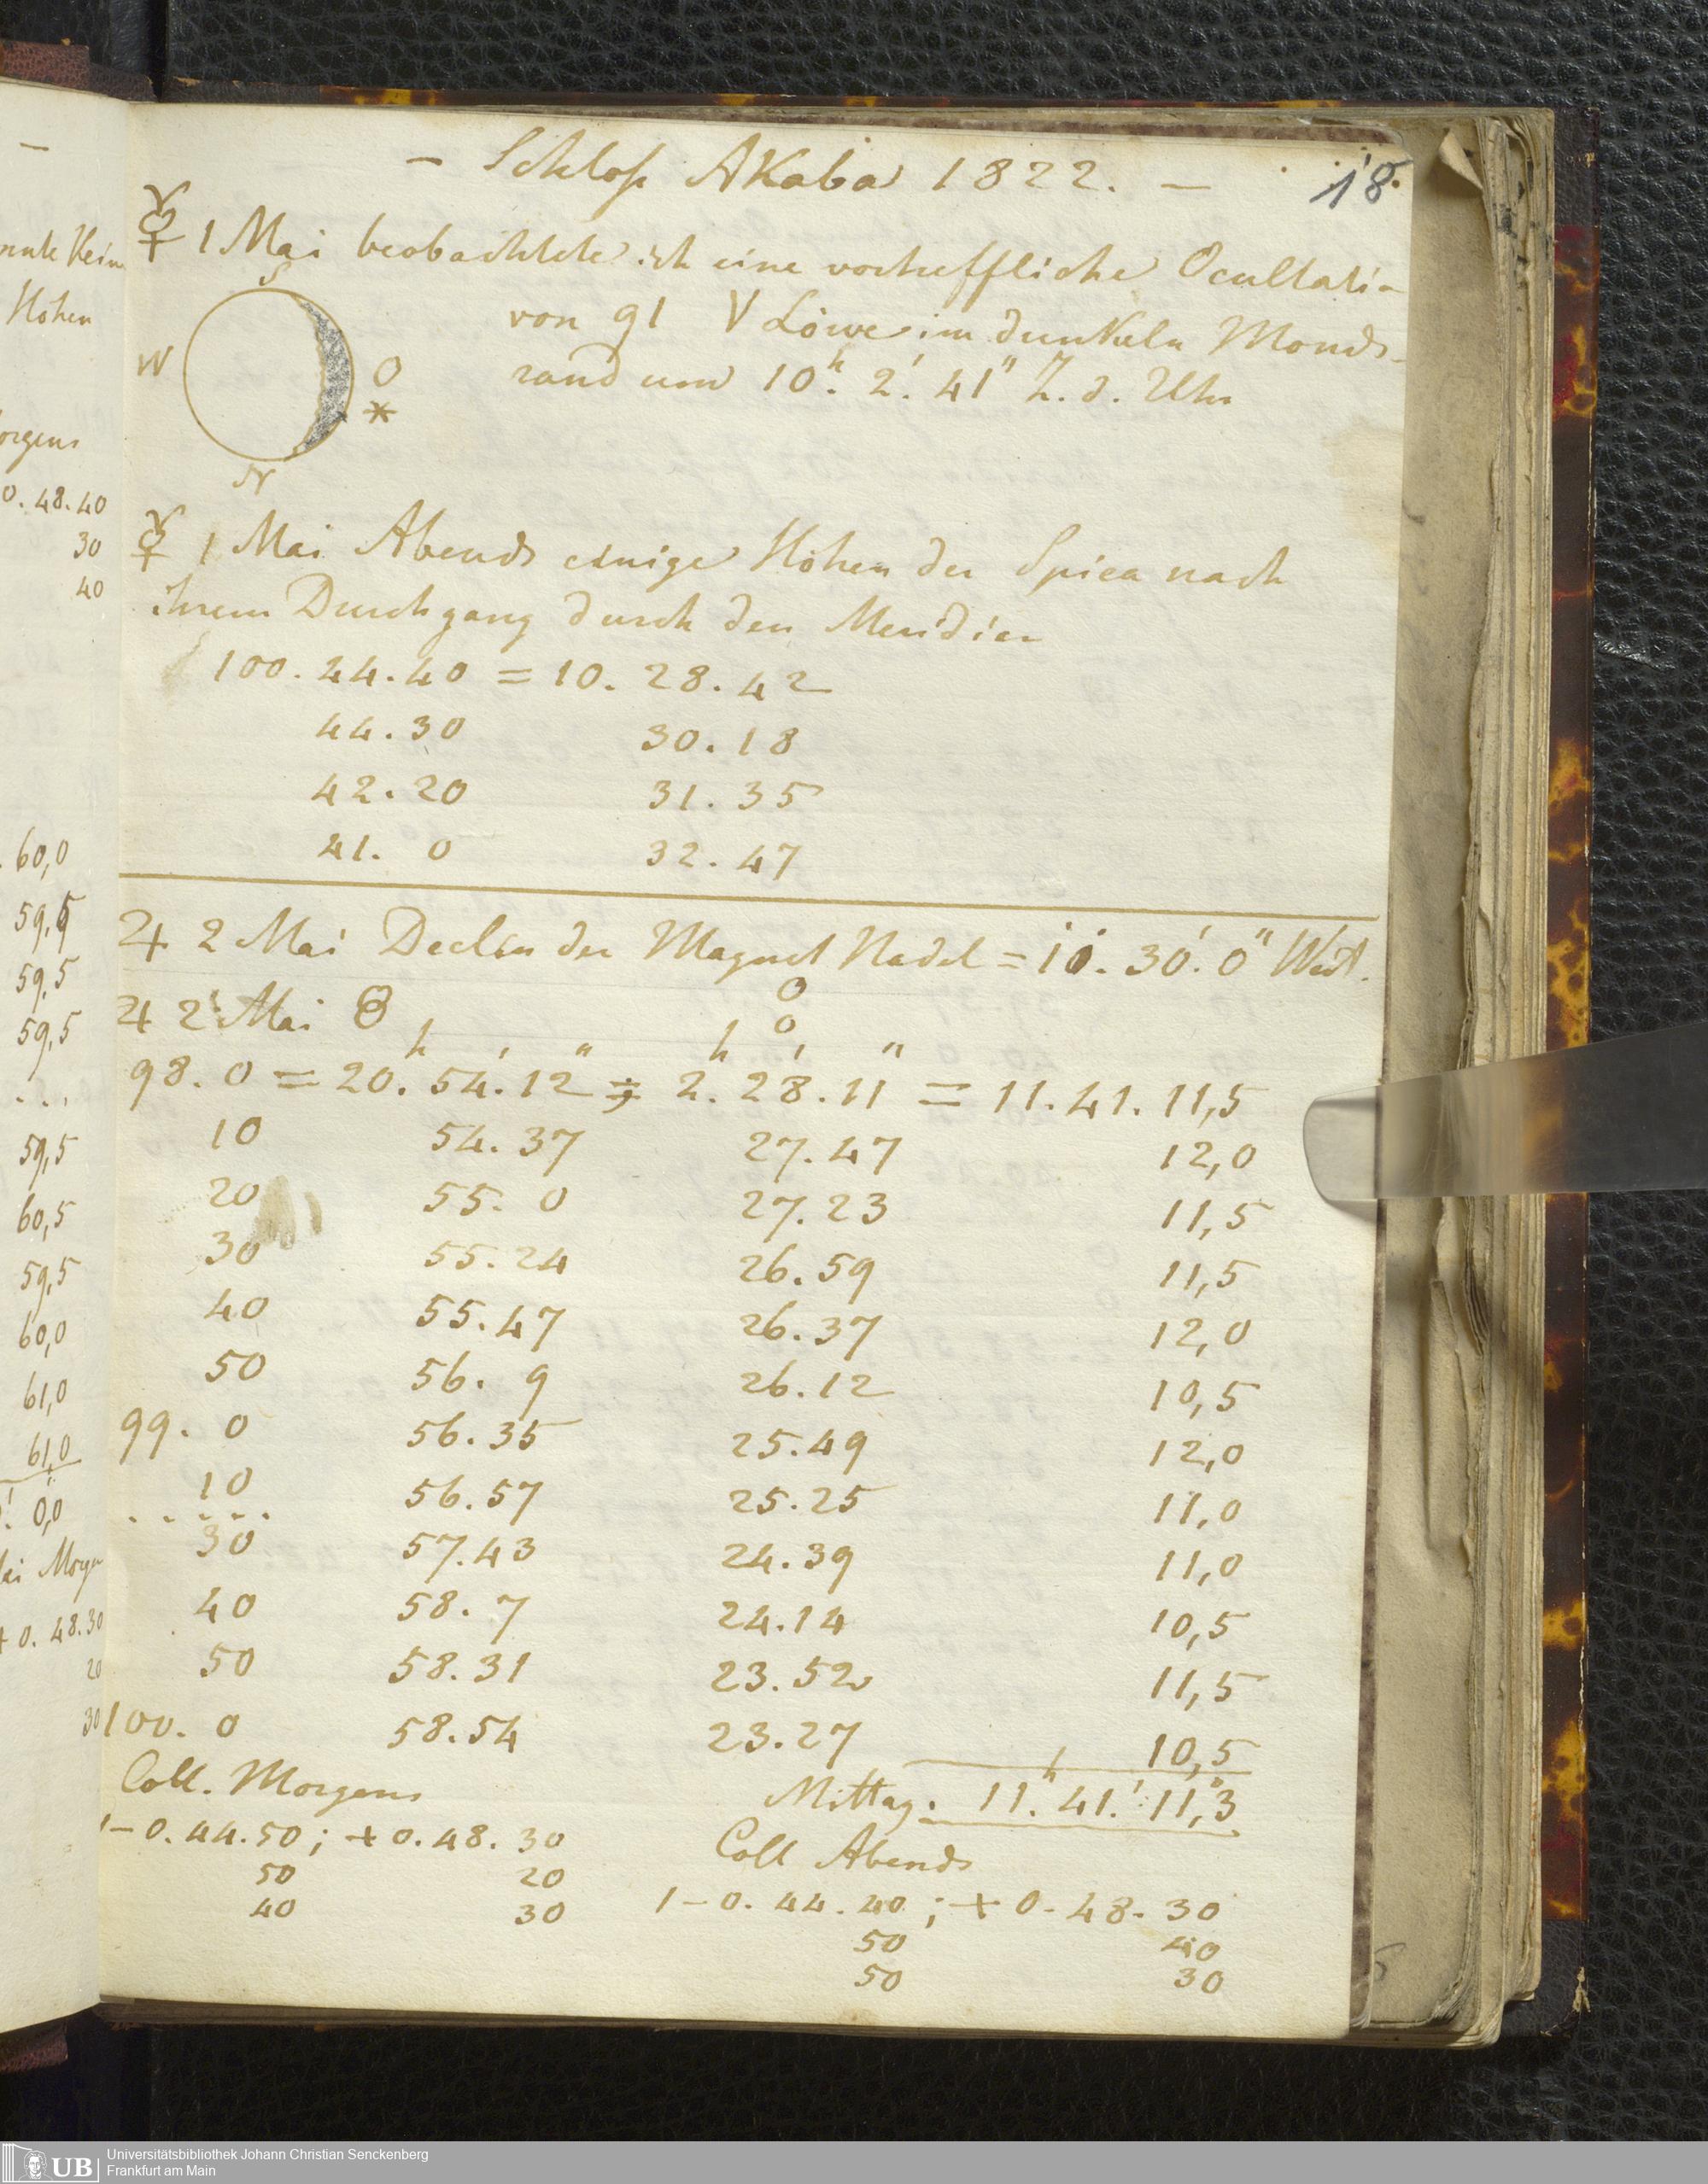 — Schloß Akaba 1822. —
18.
☿ 1 Mai beobachtete ich eine vortreffliche Ocultati-
von 91 V Löwe im dunkeln Monds-
rand um 10h. 2'. 41" Z. d. Uhr
S
W
O
*
N
☿ 1 Mai Abends einige Höhen der Spica nach
ihrem Durchgang durch den Meridian
100. 44. 40 = 10. 28. 42
44. 30 30. 18
42. 20 31. 35
41. 0 32. 47
♃ 2 Mai Declin der Magnet Nadel = 10. 30'. 0" West.
♃ 2 Mai
98. 0 = 20h. 54'. 12" ; 2h. 28'. 11" = 11. 41. 11,5
10 54. 37 27. 47 12,0
20 55. 0 27. 23 11,5
30 55. 24 26. 59 11,5
40 55. 47 26. 37 12,0
50 56. 9 26. 12 10,5
99. 0 56. 35 25. 49 12,0
10 56. 57 25. 25 11,0
. . . . . .
30 57. 43 24. 39 11,0
40 58. 7 24. 14 10,5
50 58. 31 23. 52 11,5
100. 0 58. 54 23. 27 10,5
Mittag. 11h. 41.' 11,"3
Coll. Morgens
1 – 0. 44. 50 ; + 0. 48. 30
50 20
40 30
Coll Abends
1 – 0. 44. 40 ; + 0. 48. 30
50 40
50 30
Höhen
0. 48. 40
30
40
60,0
59,5
59,5
59,5
. . .
59,5
60,5
59,5
60,0
61,0
61,0
0,0
+ 0. 48. 30
20
30
UB
Universitätsbibliothek Johann Christian Senckenberg
Frankfurt am Main